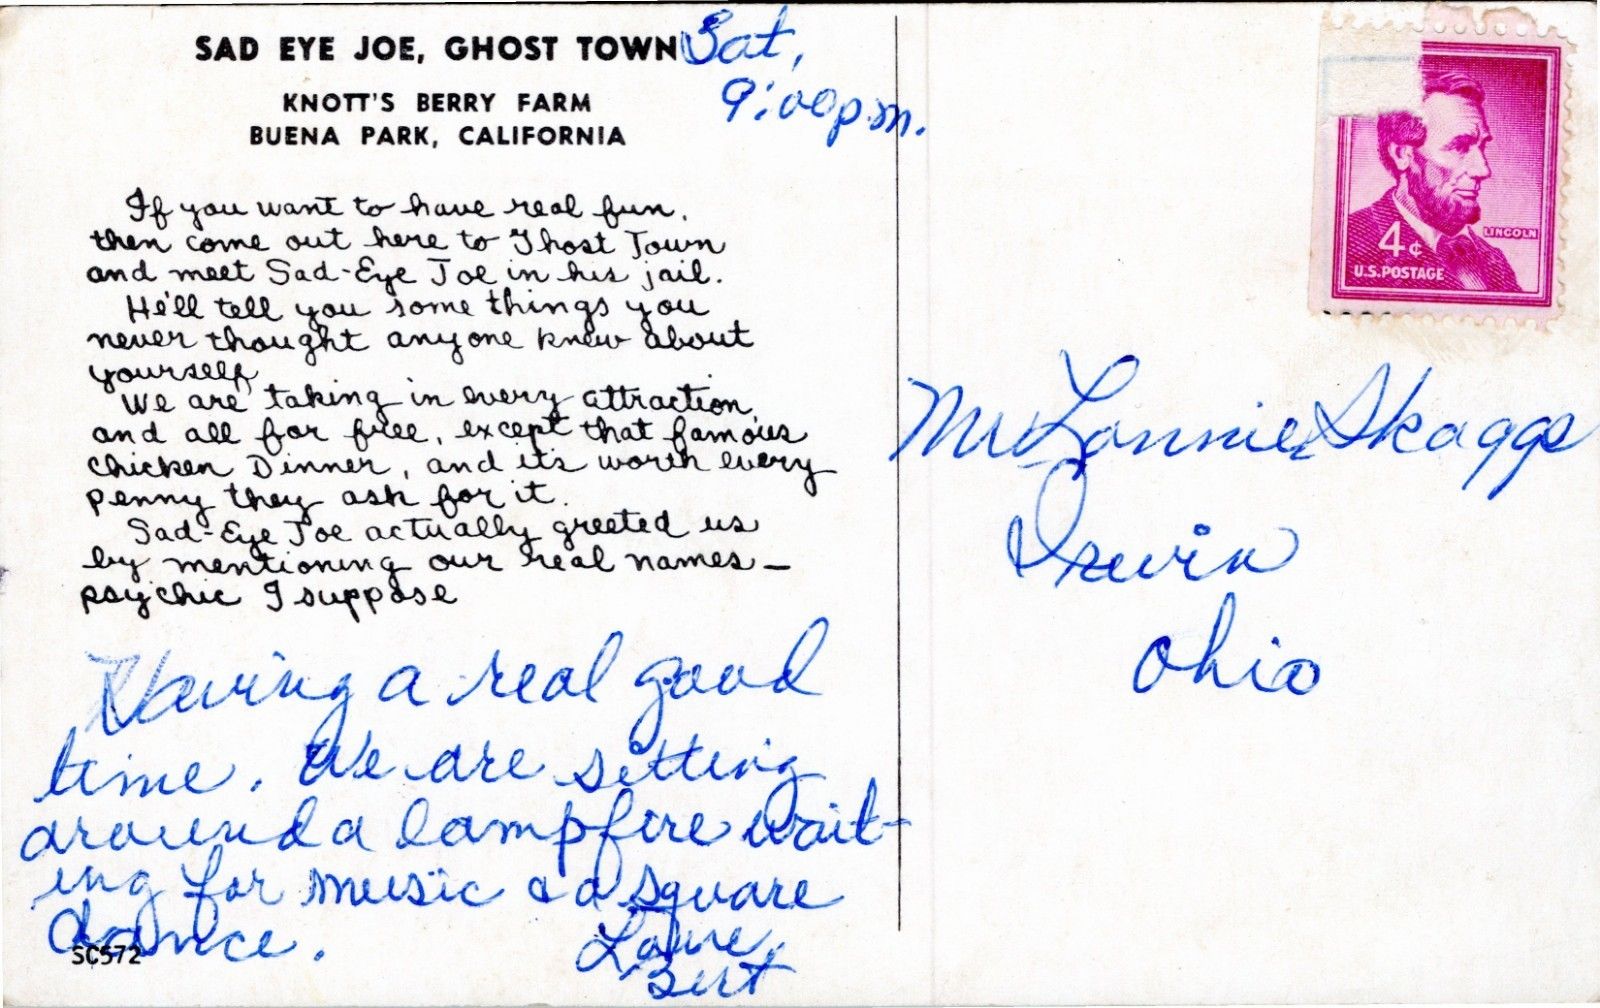 SAD EYE JOE, GHOST TOWN
KNOTT'S BERRY FARM
BUENA PARK, CALIFORNIA
Sat,
9:00 p.m.
If you want to have real fun,
then come out here to Ghost Town
and meet Sad-Eye Joe in his jail.
He'll tell you some things you
never thought anyone knew about
yourself
We are taking in every attraction,
and all for free, except that famous
chicken Dinner, and its worth every
penny they ask for it.
Sad-Eye Joe actually greeted us
by mentioning our real names—
psychic I suppose
Having a real good
time. We are sitting
around a campfire wait-
ing for music & a square
dance.
Love,
Bert
SC572
LINCOLN
4¢
U.S. POSTAGE
Mr Lonnie Skaggs
Irwin
Ohio